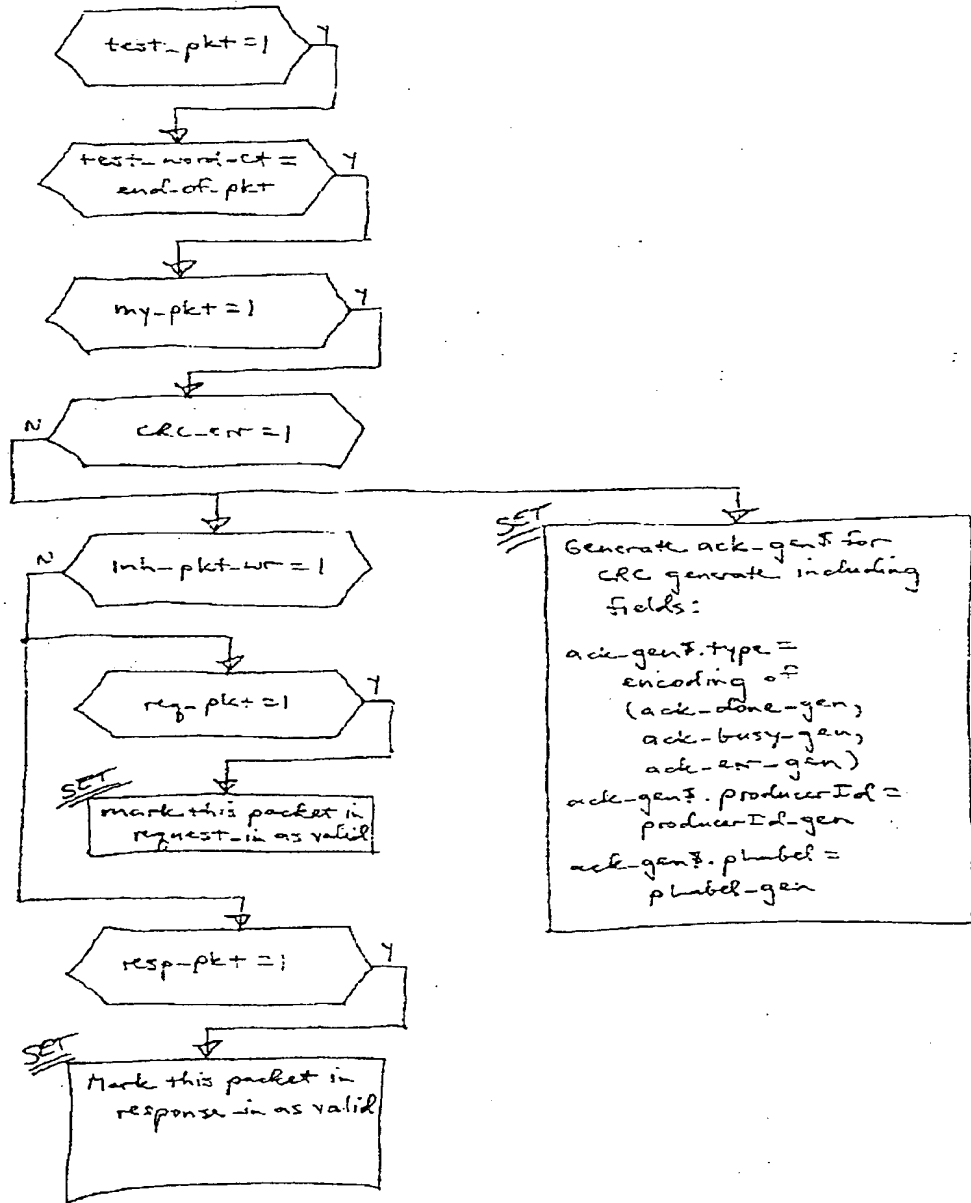 test_pkt = 1
Y
test_word_ct =
end_of_pkt
Y
my_pkt = 1
Y
CRC_err = 1
N
inh_pkt_wr = 1
N
req_pkt = 1
Y
SET
mark this packet in
request_in as valid
resp_pkt = 1
Y
SET
Mark this packet in
response_in as valid
SET
Generate ack_gen$ for
CRC generate including
fields:
ack_gen$.type =
encoding of
(ack_done_gen,
ack_busy_gen,
ack_err_gen)
ack_gen$.producerId =
producerId_gen
ack_gen$.plabel =
plabel_gen